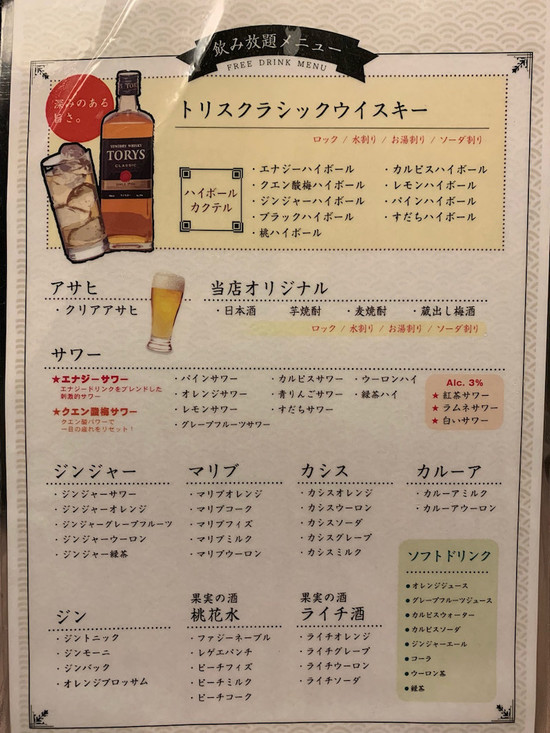 飲み放題メニュー
FREE DRINK MENU
深みのある
旨さ。
TORYS
CLASSIC
トリスクラシックウイスキー
ロック / 水割り / お湯割り / ソーダ割り
ハイボール
カクテル
・エナジーハイボール
・クエン酸梅ハイボール
・ジンジャーハイボール
・ブラックハイボール
・桃ハイボール
・カルピスハイボール
・レモンハイボール
・パインハイボール
・すだちハイボール
アサヒ
・クリアアサヒ
当店オリジナル
・日本酒 芋焼酎 ・麦焼酎 ・蔵出し梅酒
ロック / 水割り / お湯割り / ソーダ割り
サワー
★エナジーサワー
エナジードリンクをブレンドした
刺激的サワー
★クエン酸梅サワー
クエン酸パワーで
一日の疲れをリセット!
・パインサワー
・オレンジサワー
・レモンサワー
・グレープフルーツサワー
・カルピスサワー
・青りんごサワー
・すだちサワー
・ウーロンハイ
・緑茶ハイ
Alc. 3%
★ 紅茶サワー
★ ラムネサワー
★ 白いサワー
ジンジャー
・ジンジャーサワー
・ジンジャーオレンジ
・ジンジャーグレープフルーツ
・ジンジャーウーロン
・ジンジャー緑茶
マリブ
・マリブオレンジ
・マリブコーク
・マリブフィズ
・マリブミルク
・マリブウーロン
カシス
・カシスオレンジ
・カシスウーロン
・カシスソーダ
・カシスグレープ
・カシスミルク
カルーア
・カルーアミルク
・カルーアウーロン
ジン
・ジントニック
・ジンモーニ
・ジンバック
・オレンジブロッサム
果実の酒
桃花水
・ファジーネーブル
・レゲエパンチ
・ピーチフィズ
・ピーチミルク
・ピーチコーク
果実の酒
ライチ酒
・ライチオレンジ
・ライチグレープ
・ライチウーロン
・ライチソーダ
ソフトドリンク
●オレンジジュース
●グレープフルーツジュース
●カルピスウォーター
●カルピスソーダ
●ジンジャーエール
●コーラ
●ウーロン茶
●緑茶